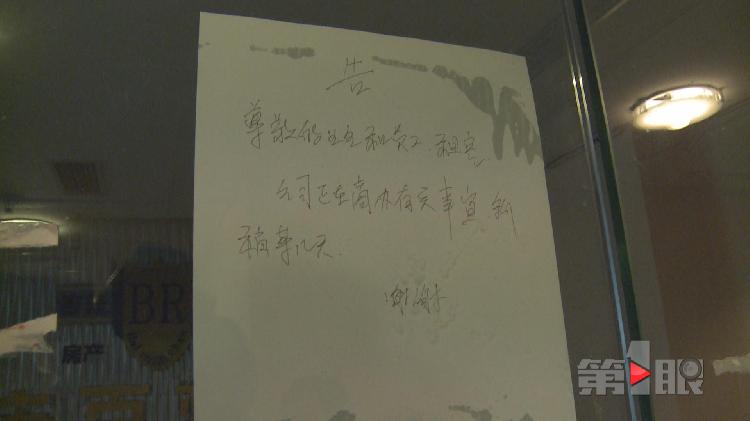 告
尊敬的业主和员工、租客
公司正在商办有关事宜,
稍等几天.
谢谢
BR
房产
第1眼